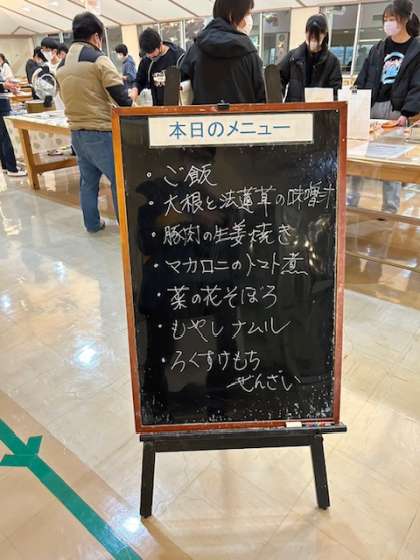 本日のメニュー
・ご飯
・大根と法蓮草の味噌汁
・豚肉の生姜焼き
・マカロニのトマト煮
・菜の花そぼろ
・もやしナムル
・ろくすけもち
ぜんざい